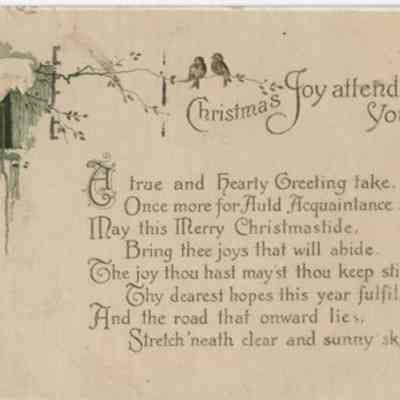 Christmas Joy attend
You
A true and Hearty Greeting take,
Once more for Auld Acquaintance
May this Merry Christmastide,
Bring thee joys that will abide.
The joy thou hast may'st thou keep sti
Thy dearest hopes this year fulfil
And the road that onward lies,
Stretch 'neath clear and sunny sk